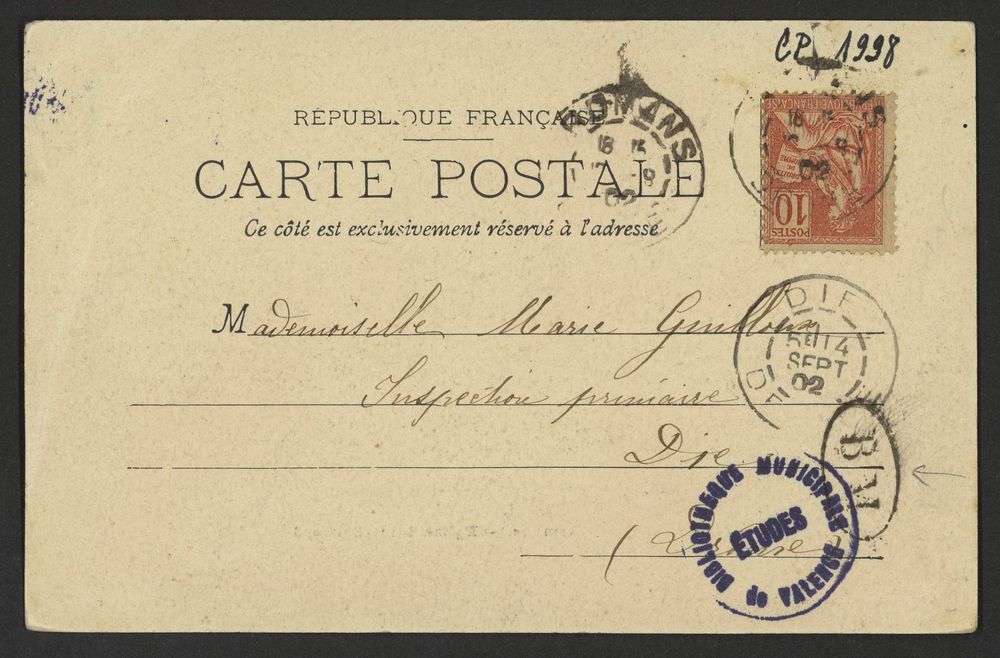 CP 1998
RÉPUBLIQUE FRANÇAISE
ROMANS
18 02
CARTE POSTALE
Ce côté est exclusivement réservé à l'adresse
RÉPUBLIQUE FRANÇAISE
DROITS DE L'HOMME
10
POSTES
02
DIE
14
SEPT
02
Mademoiselle Marie Guilloux
Inspection primaire
Die
BM
(Drôme)
BIBLIOTHÈQUE MUNICIPALE
ÉTUDES
VALENCE